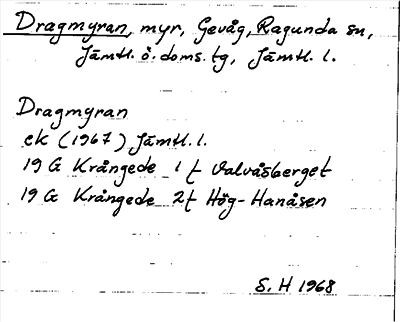 Dragmyran, myr, Gevåg, Ragunda sn,
Jämtl. ö. doms. tg, Jämtl. l.
Dragmyran
ek (1967) Jämtl. l.
19 G Krångede 1 f Valvåsberget
19 G Krångede 2f Hög-Hanåsen
S. H 1968